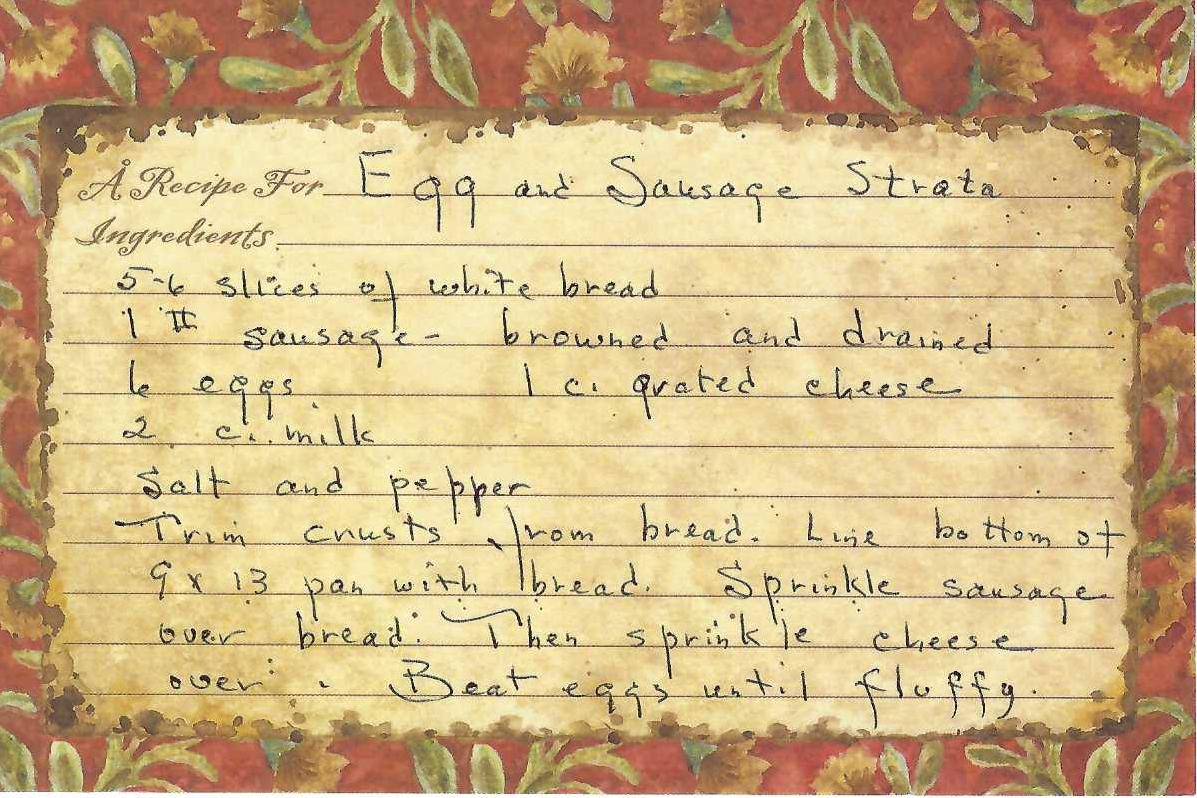 A Recipe For Egg and Sausage Strata
Ingredients
5-6 slices of white bread
1 # sausage - browned and drained
6 eggs 1 c. grated cheese
2 c. milk
Salt and pepper
Trim crusts from bread. Line bottom of
9 x 13 pan with bread. Sprinkle sausage
over bread. Then sprinkle cheese
over. Beat eggs until fluffy.